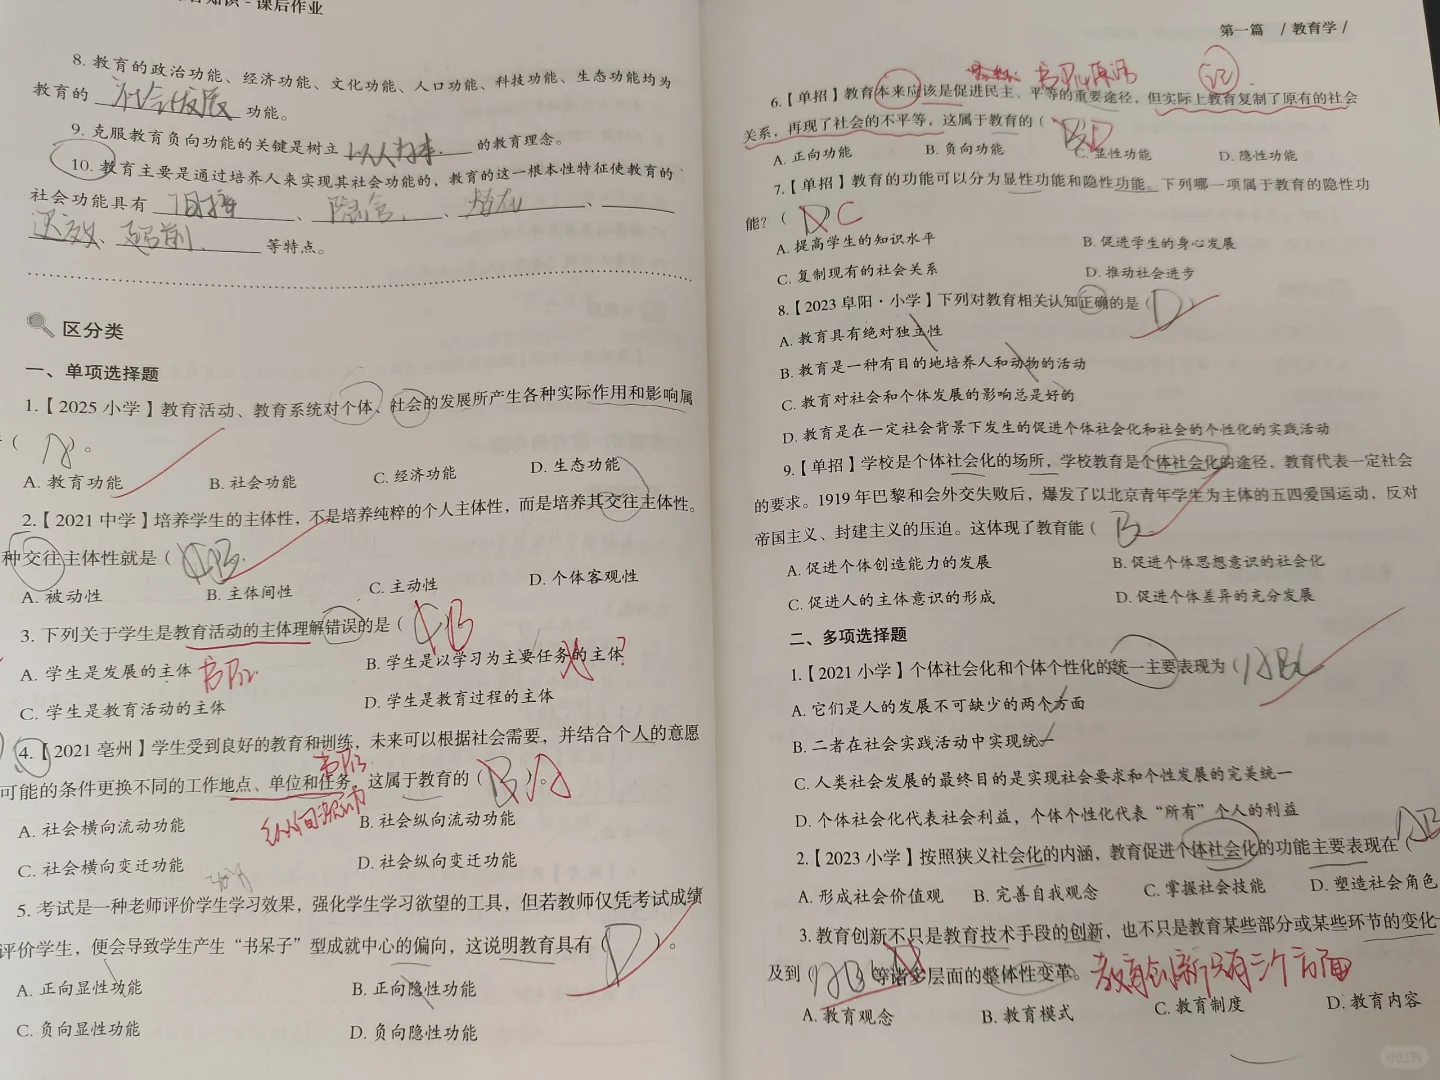 知识-课后作业
8. 教育的政治功能、经济功能、文化功能、人口功能、科技功能、生态功能均为
教育的 社会发展 功能。
9. 克服教育负向功能的关键是树立 以人为本 的教育理念。
10. 教育主要是通过培养人来实现其社会功能的,教育的这一根本性特征使教育的
社会功能具有 间接 、 隐含 、 潜在 、
迟效、 超前 等特点。
区分类
一、单项选择题
1.【2025 小学】教育活动、教育系统对个体、社会的发展所产生各种实际作用和影响属
( A )。
A. 教育功能 B. 社会功能 C. 经济功能 D. 生态功能
2.【2021 中学】培养学生的主体性,不是培养纯粹的个人主体性,而是培养其交往主体性。
种交往主体性就是( B
A. 被动性 B. 主体间性 C. 主动性 D. 个体客观性
3. 下列关于学生是教育活动的主体理解错误的是( C B
A. 学生是发展的主体 B. 学生是以学习为主要任务的主体 ?
C. 学生是教育活动的主体 D. 学生是教育过程的主体
4.【2021 亳州】学生受到良好的教育和训练,未来可以根据社会需要,并结合个人的意愿
可能的条件更换不同的工作地点、单位和任务,这属于教育的( B )。 A
A. 社会横向流动功能 纵向流动 B. 社会纵向流动功能
C. 社会横向变迁功能 D. 社会纵向变迁功能
5. 考试是一种老师评价学生学习效果,强化学生学习欲望的工具,但若教师仅凭考试成绩
评价学生,便会导致学生产生“书呆子”型成就中心的偏向,这说明教育具有( D )。
A. 正向显性功能 B. 正向隐性功能
C. 负向显性功能 D. 负向隐性功能
第一篇 / 教育学 /
记
6.【单招】教育本来应该是促进民主、平等的重要途径,但实际上教育复制了原有的社会
关系,再现了社会的不平等,这属于教育的( B D
A. 正向功能 B. 负向功能 C. 显性功能 D. 隐性功能
7.【单招】教育的功能可以分为显性功能和隐性功能。下列哪一项属于教育的隐性功
能?( D ) C
A. 提高学生的知识水平 B. 促进学生的身心发展
C. 复制现有的社会关系 D. 推动社会进步
8.【2023 阜阳·小学】下列对教育相关认知正确的是( D )
A. 教育具有绝对独立性
B. 教育是一种有目的地培养人和动物的活动
C. 教育对社会和个体发展的影响总是好的
D. 教育是在一定社会背景下发生的促进个体社会化和社会的个性化的实践活动
9.【单招】学校是个体社会化的场所,学校教育是个体社会化的途径,教育代表一定社会
的要求。1919 年巴黎和会外交失败后,爆发了以北京青年学生为主体的五四爱国运动,反对
帝国主义、封建主义的压迫。这体现了教育能( B
A. 促进个体创造能力的发展 B. 促进个体思想意识的社会化
C. 促进人的主体意识的形成 D. 促进个体差异的充分发展
二、多项选择题
1.【2021 小学】个体社会化和个体个性化的统一主要表现为( ABC
A. 它们是人的发展不可缺少的两个方面
B. 二者在社会实践活动中实现统一
C. 人类社会发展的最终目的是实现社会要求和个性发展的完美统一
D. 个体社会化代表社会利益,个体个性化代表“所有”个人的利益
2.【2023 小学】按照狭义社会化的内涵,教育促进个体社会化的功能主要表现在( AB
A. 形成社会价值观 B. 完善自我观念 C. 掌握社会技能 D. 塑造社会角色
3. 教育创新不只是教育技术手段的创新,也不只是教育某些部分或某些环节的变化
及到( 等诸多层面的整体性变革。 教育创新只有三个方面
A. 教育观念 B. 教育模式 C. 教育制度 D. 教育内容
小红书